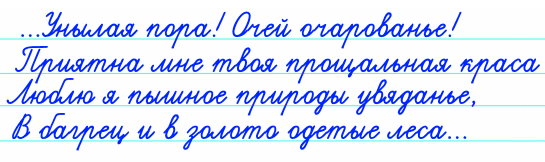 ...Унылая пора! Очей очарованье!
Приятна мне твоя прощальная краса
Люблю я пышное природы увяданье,
В багрец и в золото одетые леса...